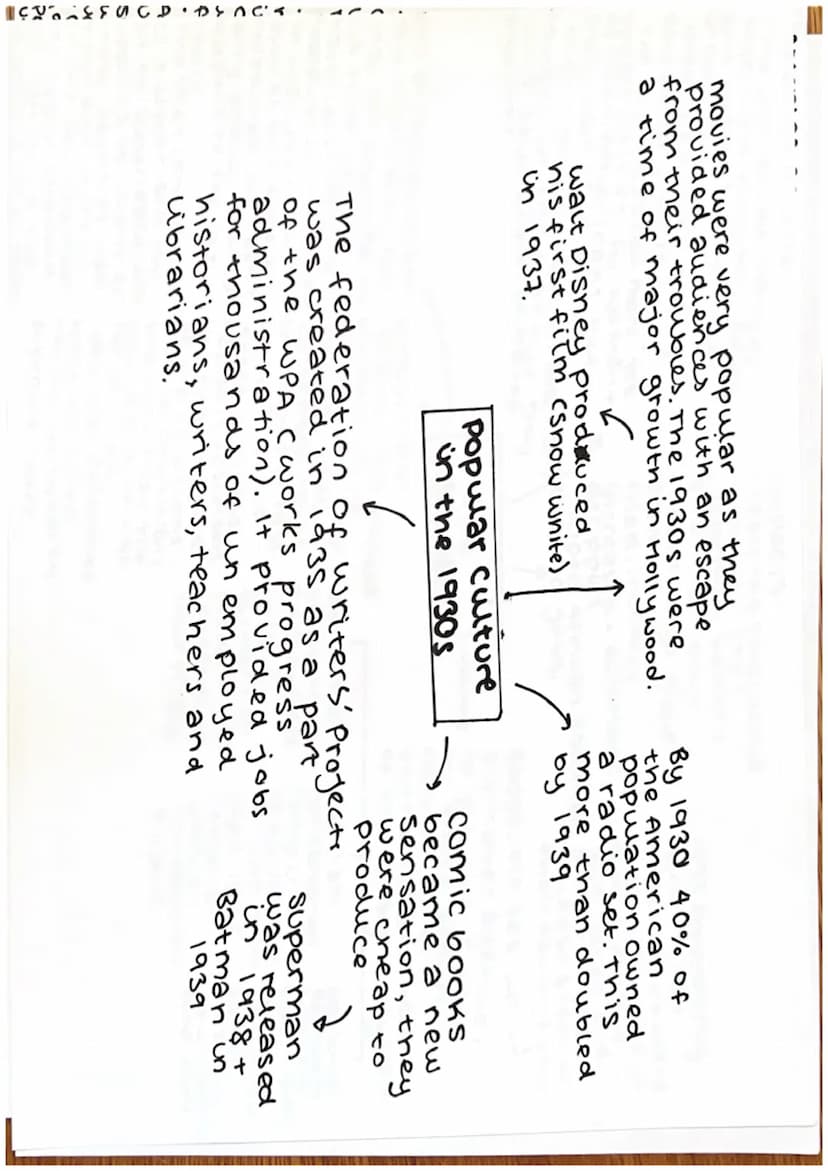 movies were very popular as they
provided audiences with an escape
from their troubles. The 1930s were
a time of major growth in Hollywood.
Walt Disney produced
his first film (snow white)
in 1937.
By 1930 40% of
the American
population owned
a radio set. This
more than doubled
by 1939
popular culture
in the 1930s
The federation of writers' projects
was created in 1935 as a part
of the WPA (works progress
administration). It provided jobs
for thousands of un employed
historians, writers, teachers and
librarians.
comic books
became a new
sensation, they
were cheap to
produce
superman
was released
in 1938 +
Batman in
1939